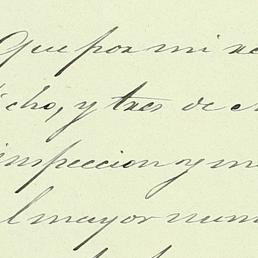 Que por mi re
cho, y tres de
inspeccion y m
l mayor num